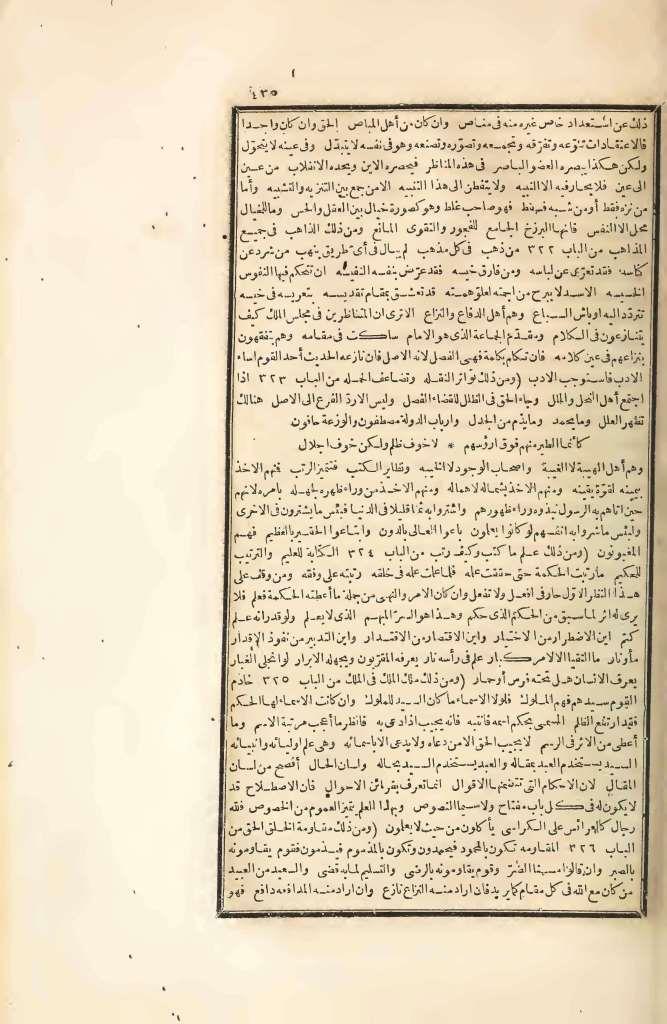 ٤٣٥
ذلك عن استعداد خاص غيره منه فى مناص وان كان من أهل المباص الحق وان كان واحدا
فالاعتقادات تنوّعه وتفرّقه وتجمعه وتصوّره وتصنعه وهو فى نفسه لا يتبدّل وفى عينه لا يتحوّل
ولكن هكذا يبصره العضو الباصر فى هذه المناظر فيحصره الاين ويحده الانقلاب من عين
الى عين فلا يحار فيه الا النبيه ولا يتفطن الى هذا التنبيه الا من جمع بين التنزيه والتشبيه وأما
من نزه فقط أو من شبه فقط فهو صاحب غلط وهو كصورة خيال بين العقل والحس وما للخيال
محل الا النفس فانها البرزخ الجامع للفجور والتقوى المانع ومن ذلك الذاهب فى جميع
المذاهب من الباب ٣٢٢ من ذهب فى كل مذهب لم يبال فى أى طريق يذهب من شرد عن
كناسه فقد تعرّى عن لباسه ومن فارق خيسه فقد عرّض بنفسه النفيسة ان تتحكم فيها النفوس
الخسيسه الاسد لا يبرح من اجمته لعلوّ همته قد تعشق بمقام تقديسه بتعريسه فى خيسه
تتردد اليه اوباش السباع وهم أهل الدفاع والنزاع الا ترى ان المتناظرين فى مجلس الملك كيف
يتنازعون فى الكلام ومقدّم الجماعة الذى هو الامام ساكت فى مقامه وهم يتفقهون
بنزاعهم فى عين كلامه فان تكلم بكلمة فهى الفصل لانه الاصل فان نازعه الحديث أحد القوم اساء
الادب فاستوجب الادب (ومن ذلك تواتر النقله وتضاعف الحمله من الباب ٣٢٣ اذا
اجتمع أهل النحل والملل وجاء الحق فى الظلل للقضاء الفصل وليس الا رد الفرع الى الاصل هنالك
تظهر العلل وما يحمد وما يذم من الجدل وارباب الدولة مصطفون والوزعة حافون
كأنما الطير منهم فوق ارؤسهم * لا خوف ظلم ولكن خوف اجلال
وهم أهل الهيبة لا الغيبة واصحاب الوجود لا الخيبه وتطاير الكتب فتتميز الرتب فمنهم الاخذ
بيمينه لقوّة يقينه ومنهم الاخذ بشماله لاهماله ومنهم الاخذ من وراء ظهره لجهله بامره لانهم
حين اتاهم به الرسول نبذوه وراء ظهورهم واشتروا به ثمنا قليلا فى الدنيا فبئس ما يشترون فى الاخرى
ولبئس ما شروا به انفسهم لو كانوا يعلمون باعوا العالى بالدون وابتاعوا الحقير بالعظيم فهم
المغبونون (ومن ذلك علم ما كتب وكيف رتب من الباب ٣٢٤ الكتابة للعليم والترتيب
للحكيم ما رتبت الحكمة حتى حققت علمه فلما عاث علمه فى خلقه رتبته على وفقه ومن وقف على
هذا النظر الاوّل حار فى افعل ولا تفعل وان كان الامر والنهى من جملة ما أعطته الحكمة فعلم فلا
يرى له اثر لما سبق من الحكم الذى حكم وهذا هو السرّ المبهم الذى لا يعلم ولو قدر انه علم
كتم اين الاضطرار من الاختيار واين الاقتصار من الاقتدار واين التدبير من نفوذ الاقدار
ما ونار ما التقيا الا لامر كبار علم فى رأسه نار يعرفه المقرّبون ويجهله الابرار لو انجلى الغبار
يعرف الانسان هل تحته فرس أو حمار (ومن ذلك ملك الملك فى الملك من الباب ٣٢٥ خادم
القوم سيدهم فهم الملوك فلولا الاسماء ما كان السيد للمملوك وان كانت الاسماء لها الحكم
فقد ارتفع الظلم المسمى بحكم اسمه فانتبه فانه يجيب اذا دعى به فانظر ما أعجب مرتبة الاسم وما
أعطى من الاثر فى الرسم لا يجيب الحق الا من دعاه ولا يدعى الا باسمائه وهى علم اوليائه وانبيائه
السيد يستخدم العبد بمقاله والعبد يستخدم السيد بحاله ولسان الحال أفصح من لسان
المقال لان الاحكام التى تتضمنها الاقوال انما تعرف بقرائن الاحوال فان الاصطلاح قد
لا يكون له فى كل باب مفتاح ولا سيما النصوص وبهذا العلم يتميز العموم من الخصوص فلله
رجال كالعرائس على الكراسى يأكلون من حيث لا يعلمون (ومن ذلك مقاومة الخلق الحق من
الباب ٣٢٦ المقاومة تكون بالمحمود فيحمدون وتكون بالمذموم فيذمون فقوم يقاومونه
بالصبر وان قالوا مسنا الضرّ وقوم يقاومونه بالرضى والتسليم لما به قضى والسعيد من العبيد
من كان مع الله فى كل مقام كما يريد فان اراد منه النزاع نازع وان اراد منه المدافعه دافع فهو